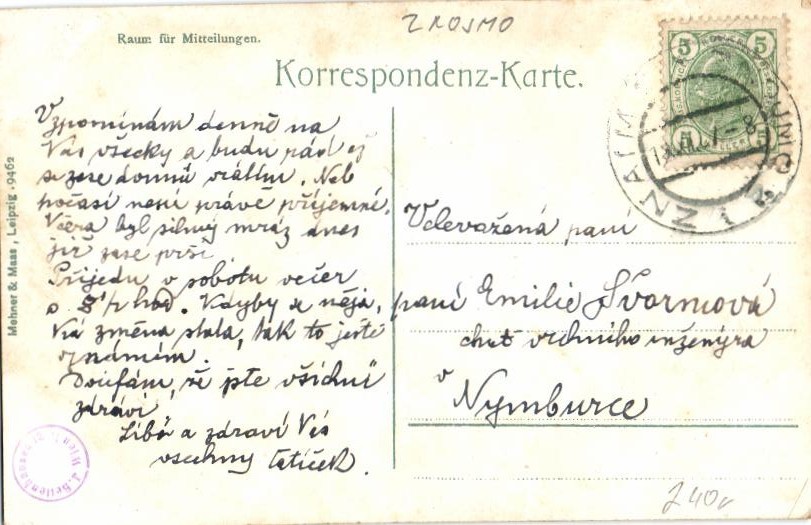 ZNOJMO
Raum für Mitteilungen.
Korrespondenz-Karte.
5 5
ZNAIM
ZNOJMO
Vzpomínám denně na
Vás všecky a budu rád až
se zase domů vrátím. Neb
počasí není právě příjemné.
Včera byl silný mráz dnes
již zase prší.
Přijedu v sobotu večer
o 8 1/2 hod. Kdyby se něja,
ká změna stala, tak to ještě
oznámím.
Doufám, že jste všichni
zdrávi
Líbá a zdraví Vás
všechny tatíček.
Velevážená paní
paní Emilie Švormová
choť vrchního inženýra
v
Nymburce
Mehner & Maas, Leipzig. 9462
240,-